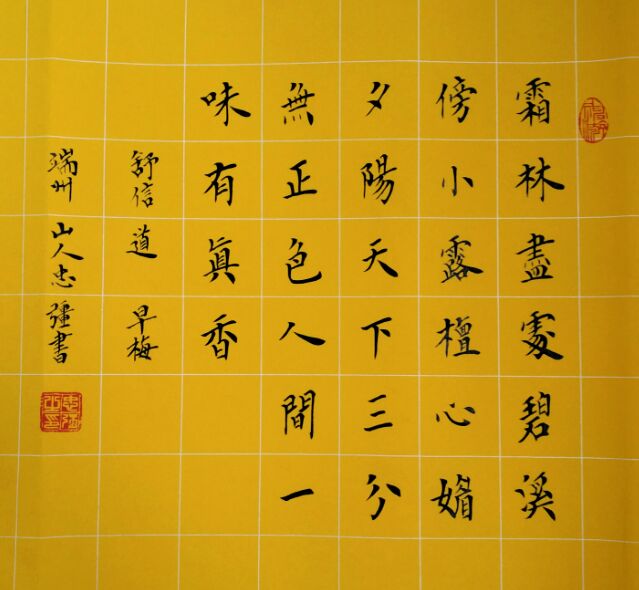 霜林盡處碧溪
傍小露檀心媚
夕陽天下三分
無正色人間一
味有眞香
舒信道 早梅
端州 山人忠強書